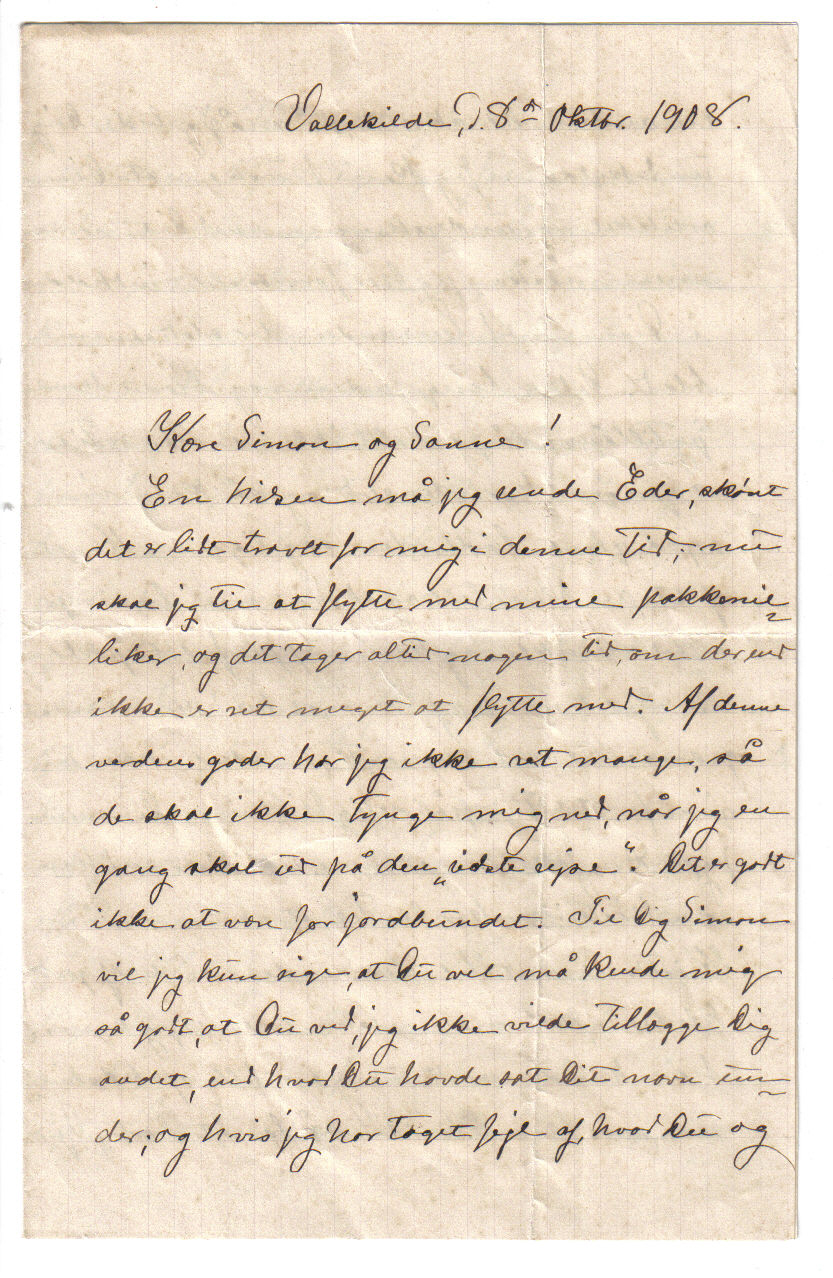 Vallekilde, d. 8de Oktbr. 1908.
Kære Simon og Sanne!
En hilsen må jeg sende Eder, skønt
det er lidt travlt for mig i denne tid; nu
skal jeg til at flytte med mine pakkenil-
liker, og det tager altid nogen tid, om der end
ikke er ret meget at flytte med. Af denne
verdens goder har jeg ikke ret mange, så
de skal ikke tynge mig ned, når jeg en
gang skal ud på den „sidste rejse“. Det er godt
ikke at være for jordbundet. Til Dig Simon
vil jeg kun sige, at Du vel må kende mig
så godt, at Du ved, jeg ikke vilde tillægge Dig
andet, end hvad Du havde sat Dit navn un-
der; og hvis jeg har taget fejl af, hvad Du og